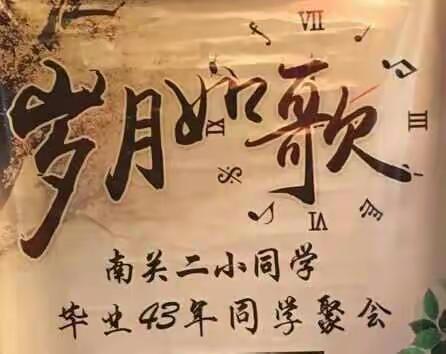 岁月如歌
VII
III
IX
VI
南关二小同学
毕业43年同学聚会